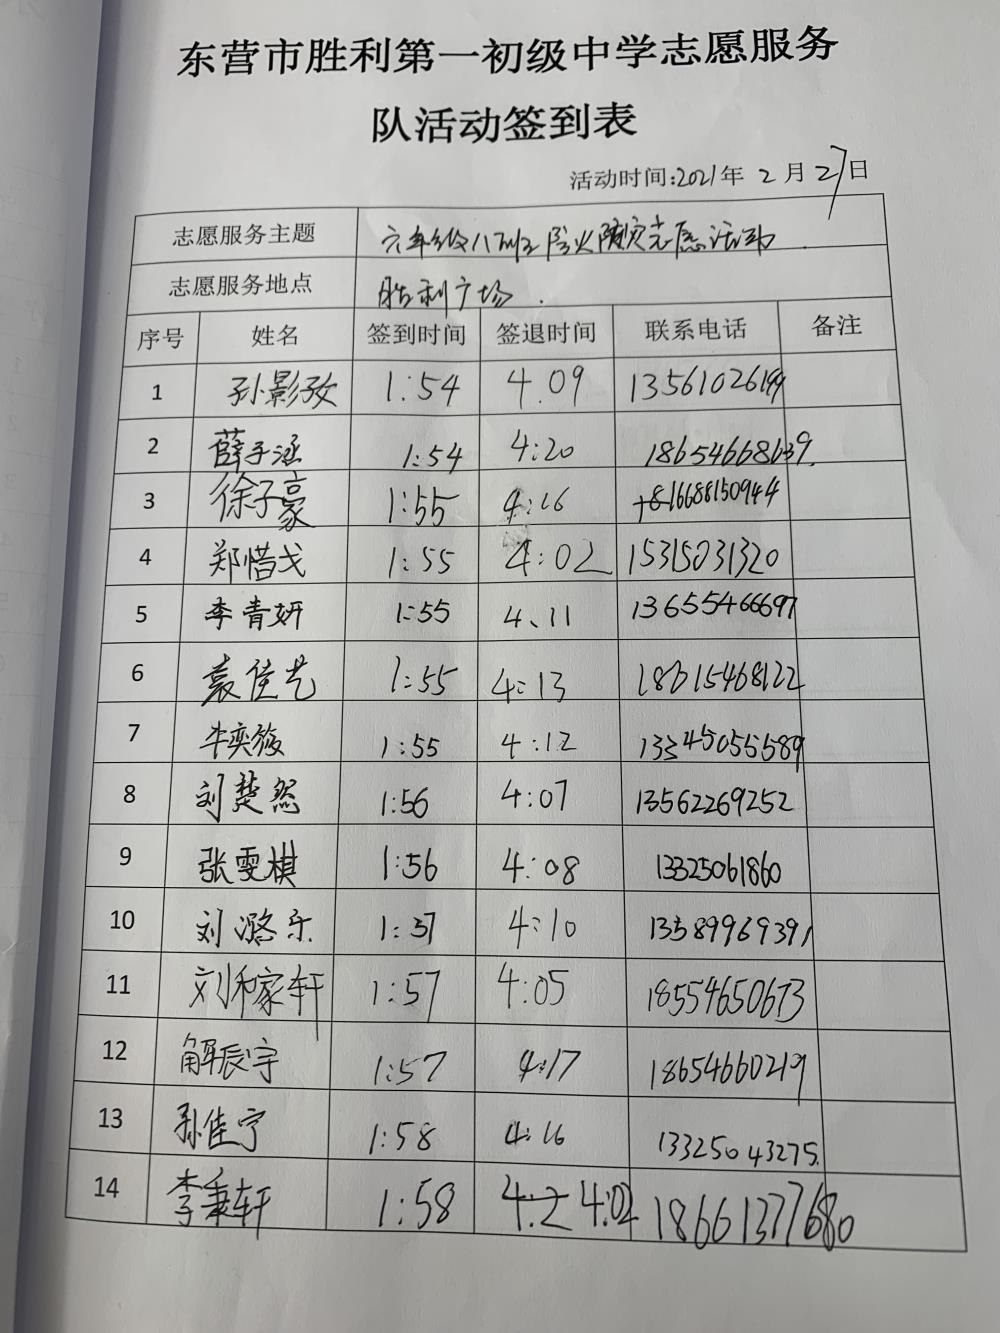 东营市胜利第一初级中学志愿服务
队活动签到表
活动时间:2021年 2 月 27日
志愿服务主题 六年级八班 防火防灾志愿活动.
志愿服务地点 胜利广场.
序号 姓名 签到时间 签退时间 联系电话 备注
1 孙影孜 1:54 4.09 135610261
2 薛子涵 1:54 4:20 18654668639.
3 徐子豪 1:55 4:16 +8616688150944
4 郑惜戈 1:55 4:02 15315031320
5 李青妍 1:55 4、11 13655466697
6 袁佳艺 1:55 4:13 18615468122
7 牛奕筱 1:55 4:12 13345055589
8 刘楚然 1:56 4:07 13562269252
9 张雯棋 1:56 4:08 13325061860
10 刘潞乐 1:57 4:10 13589969391
11 刘和家轩 1:57 4:05 18554650673
12 解辰宇 1:57 4:17 18654660219
13 孙佳宁 1:58 4:16 13325043275.
14 李秉轩 1:58 4:2 4:02 18661377680